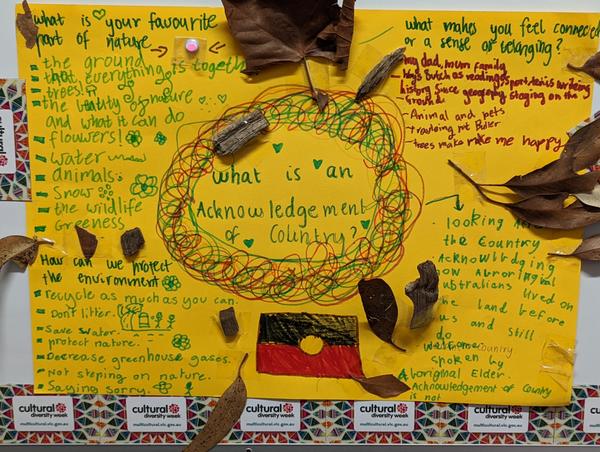 what is your favourite
part of nature
the ground
that everything is together
trees!!
the beauty of nature
and what it can do
flowers!
Water
animals
Snow
the wildlife
Greeness
How can we protect
the environment
recycle as much as you can.
Don't litter.
Save water.
protect nature.
Decrease greenhouse gases.
Not steping on nature.
Saying sorry
What is an
Acknowledgement
of Country?
what makes you feel connected
or a sense of belonging?
my dad, mum family
history since geography staging on the
Ground
Animal and pets
trees make me happy
looking
the Country
Acknowledging
how Aboriginal
Australians lived on
the land before
us and still
do
Welcome Country
spoken by
Aboriginal Elder
Acknowledgement of Country
is not
cultural
diversity week
multicultural.vic.gov.au
cultural
diversity week
multicultural.vic.gov.au
cultural
diversity week
multicultural.vic.gov.au
cultural
diversity week
multicultural.vic.gov.au
cultural
diversity week
multicultural.vic.gov.au